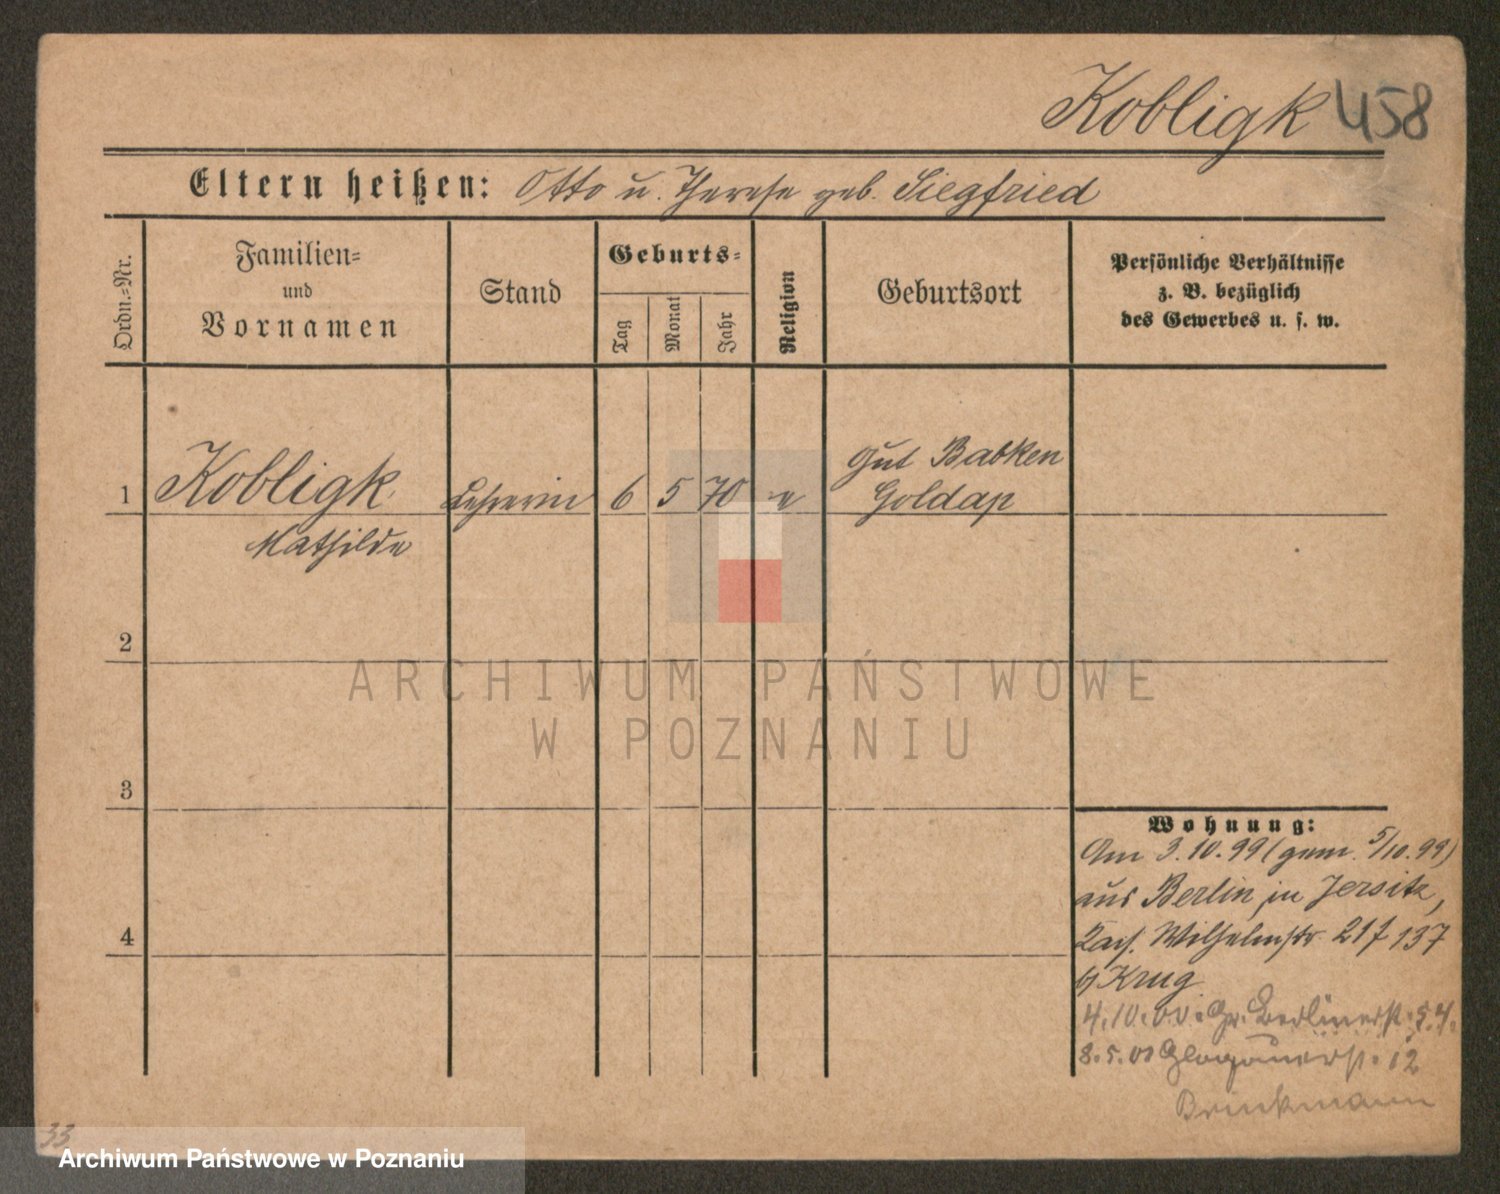 Kobligk 458
Eltern heißen: Otto u. Therese geb. Siegfried
Ordn.-Nr.
Familien-
und
Vornamen
Stand
Geburts-
Tag
Monat
Jahr
Religion
Geburtsort
Persönliche Verhältnisse
z. B. bezüglich
des Gewerbes u. s. w.
Gut Babken
1 Kobligk Lehrerin 6 5 70 e Goldap
Mathilde
2
ARCHIWUM PAŃSTWOWE
W POZNANIU
3
Wohnung:
Am 3.10.99 (gem. 5/10.99)
aus Berlin in Jersitz,
4
Wilhelmstr. 137
Krug
4.10.00. Gr. Berlinerst.
8.5.01 Glogauerst. 12
Brinkmann
33
Archiwum Państwowe w Poznaniu